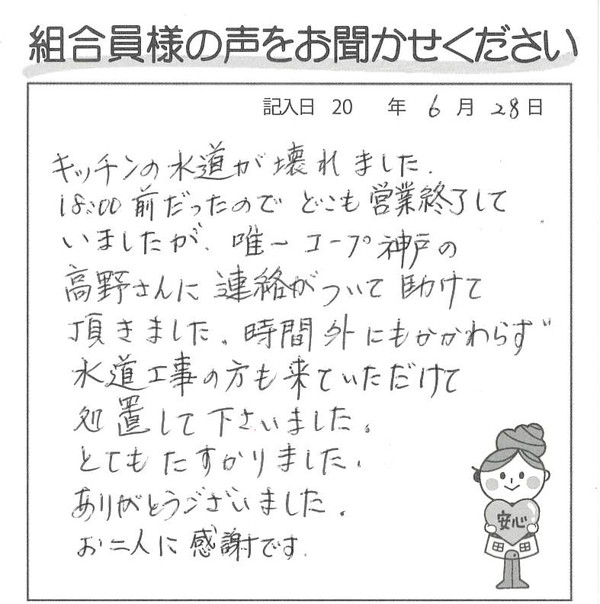 組合員様の声をお聞かせください
記入日 20 年 6 月 28 日
キッチンの水道が壊れました.
18:00前だったのでどこも営業終了して
いましたが、唯一コープ神戸の
高野さんに連絡がついて助けて
頂きました。時間外にもかかわらず
水道工事の方も来ていただけて
処置して下さいました。
とてもたすかりました.
ありがとうございました.
お二人に感謝です.
安心